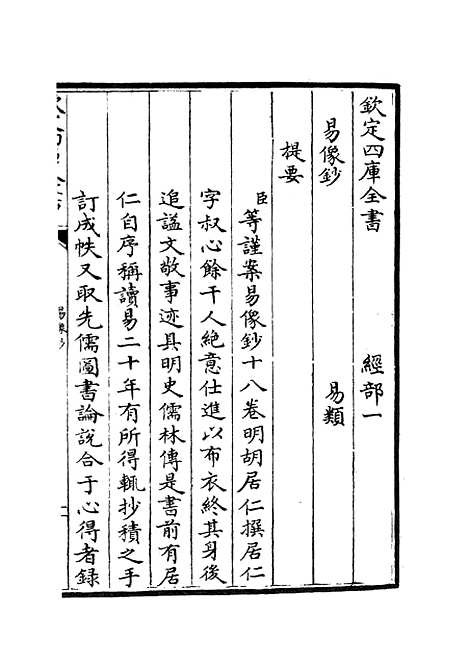 欽定四庫全書　經部一
易像鈔　易類
提要
臣等謹案易像鈔十八卷明胡居仁撰居仁
字叔心餘干人絶意仕進以布衣終其身後
追謚文敬事迹具明史儒林傳是書前有居
仁自序稱讀易二十年有所得輒抄積之手
訂成帙又取先儒圖書論說合于心得者録